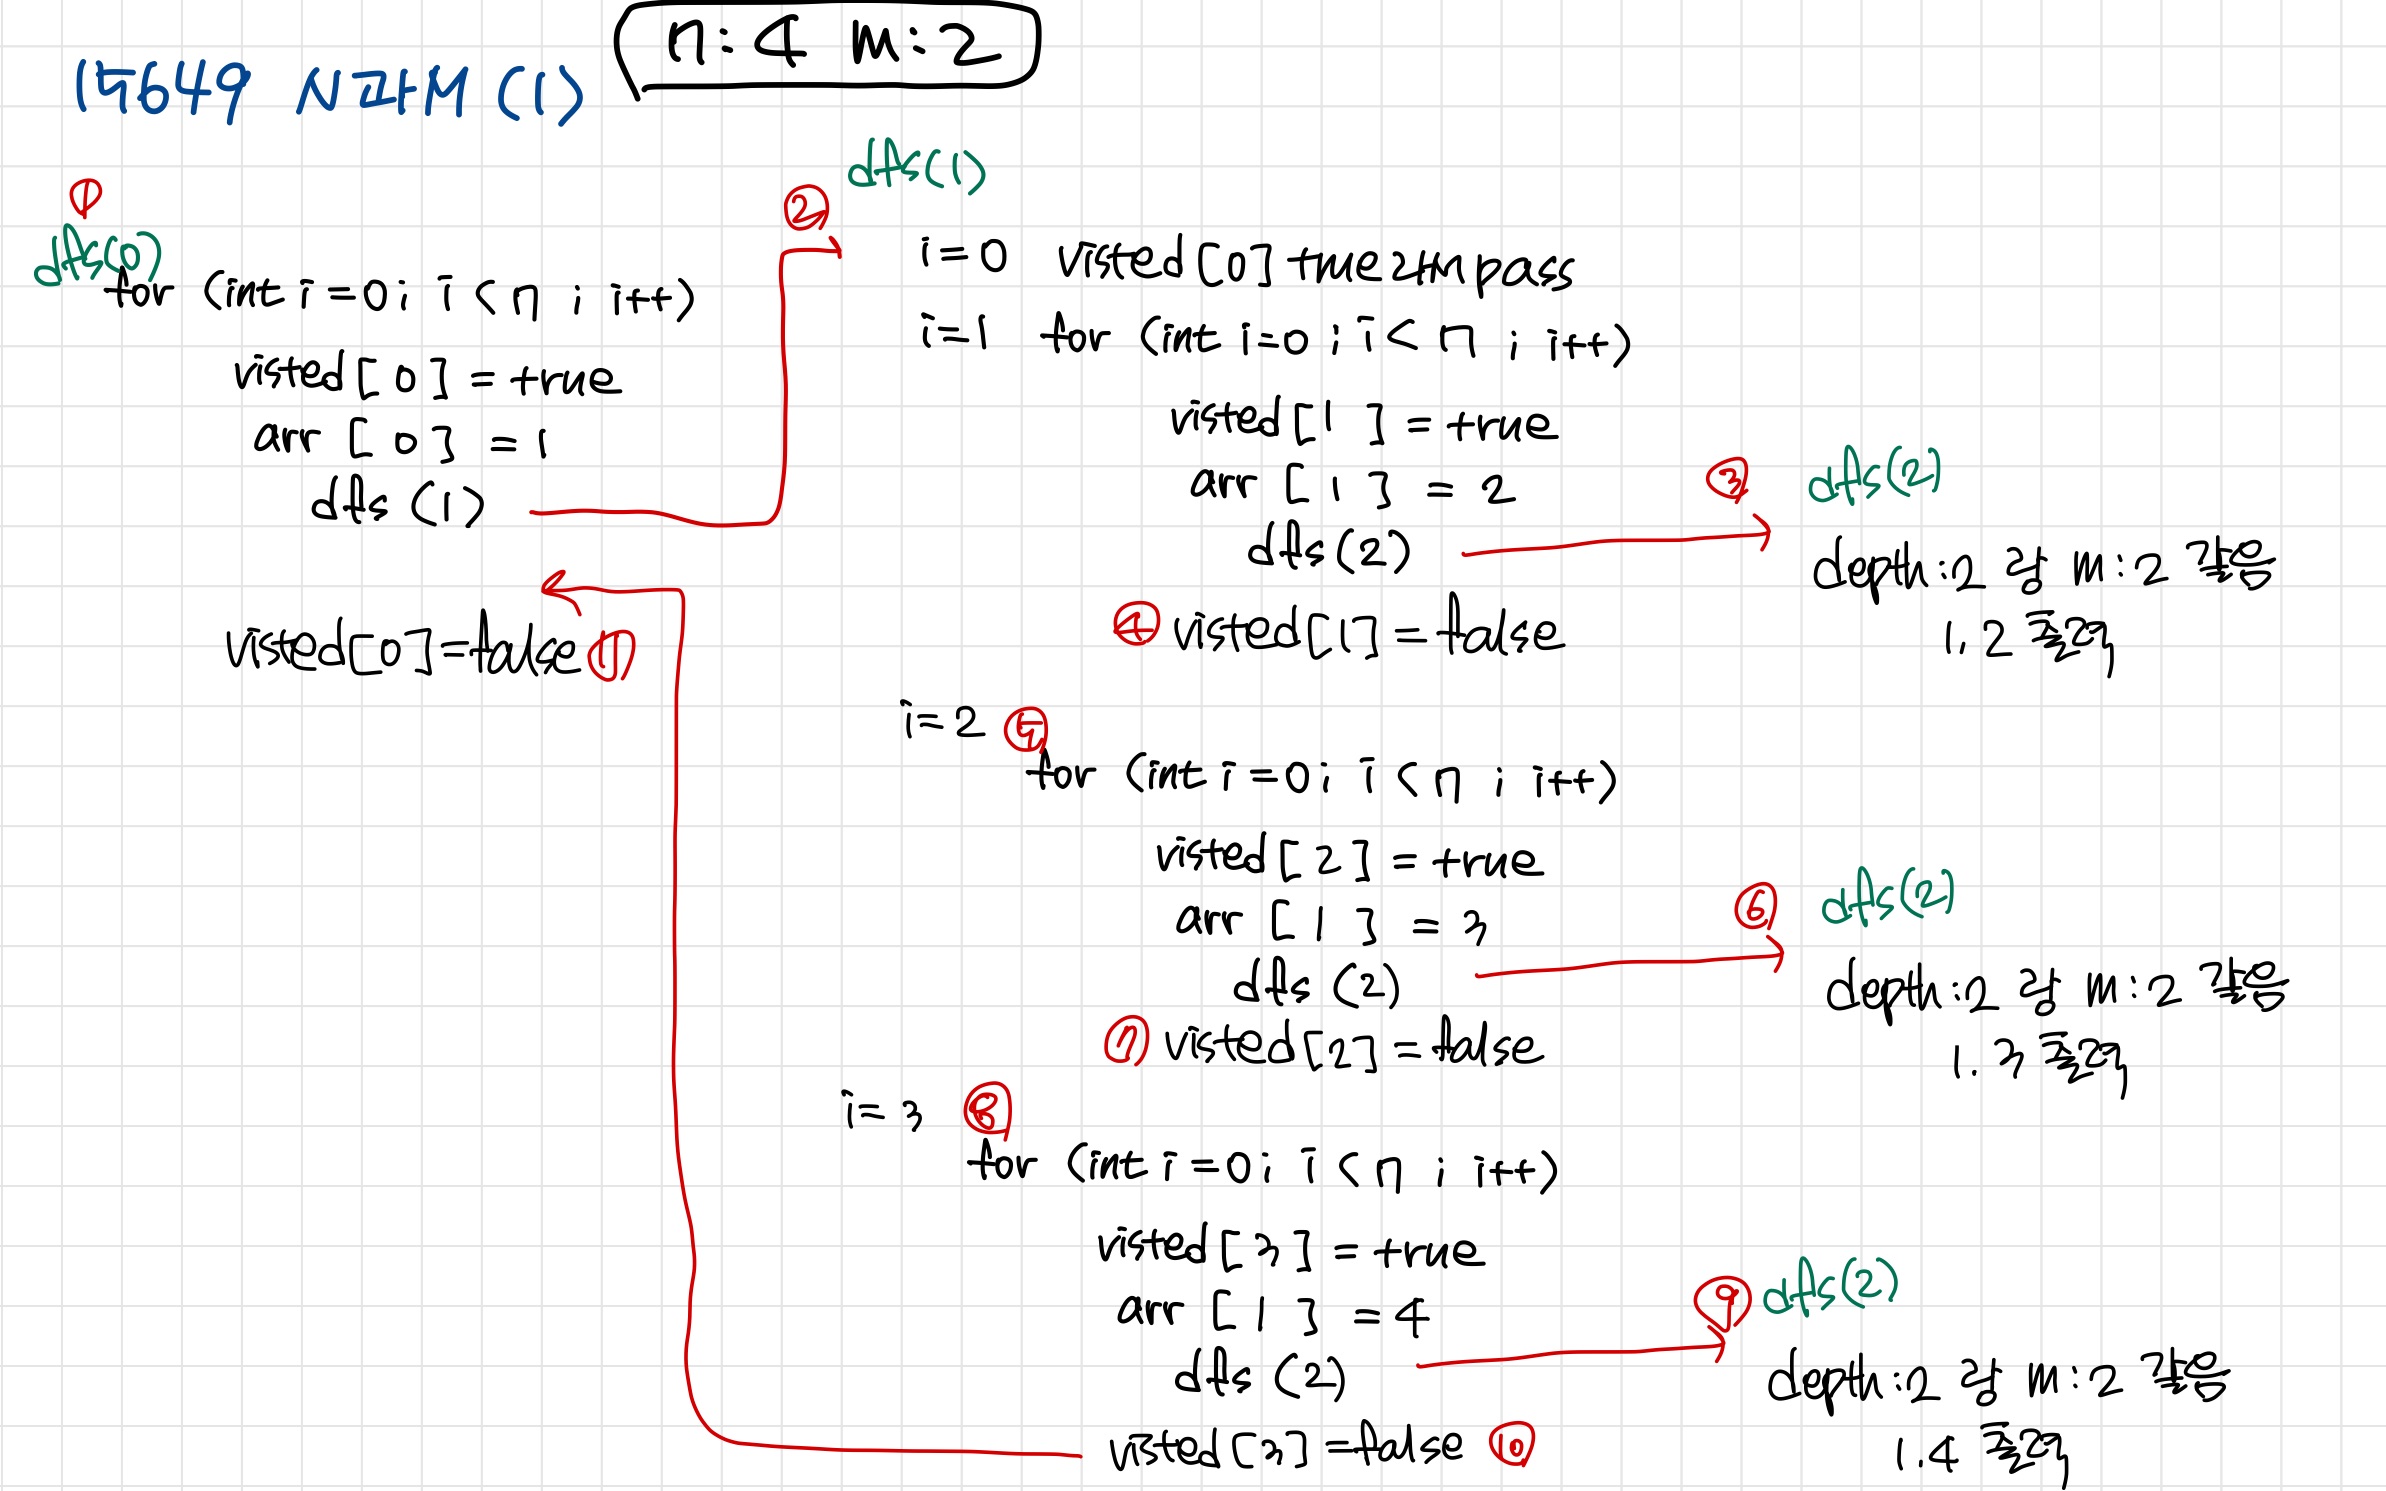 n:4 m:2
15649 N과M (1)
①
dfs(0)
for (int i=0; i<n; i++)
visted[0] = true
arr [0] = 1
dfs (1)
visted[0]=false ⑪
②
dfs(1)
i=0 visted[0] true라 pass
i=1 for (int i=0; i<n; i++)
visted[1] = true
arr [1] = 2
dfs(2)
③ dfs(2)
depth:2 랑 m:2 같음
1.2 출력
④ visted[1]=false
i=2 ⑤
for (int i=0; i<n; i++)
visted[2] = true
arr [1] = 3
dfs (2)
⑥ dfs(2)
depth:2 랑 m:2 같음
1.3 출력
⑦ visted[2]=false
i=3 ⑧
for (int i=0; i<n; i++)
visted[3] = true
arr [1] = 4
dfs (2)
⑨ dfs(2)
depth:2 랑 m:2 같음
1.4 출력
visted[3]=false ⑩